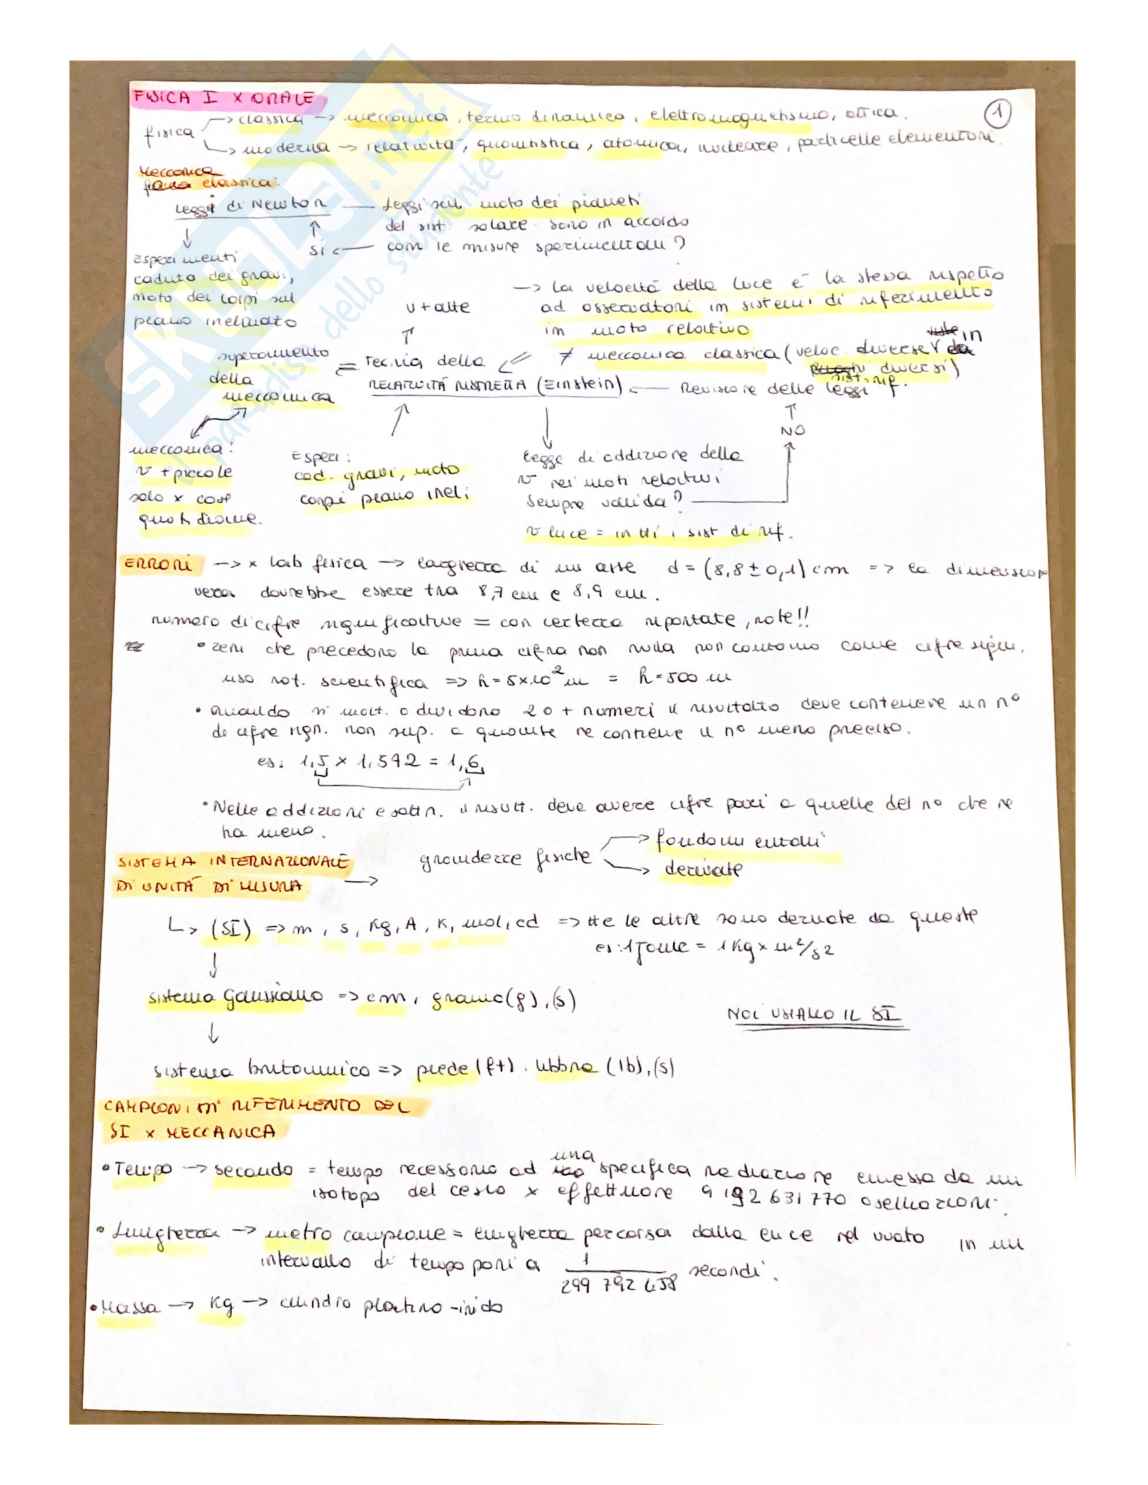 FISICA I x ORALE
1
fisica → classica → meccanica, termo dinamica, elettromagnetismo, ottica.
→ moderna → relatività, quantistica, atomica, nucleare, particelle elementari.
Meccanica
classica:
Leggi di Newton — Leggi sul moto dei pianeti
del sist solare sono in accordo
Si ← con le misure sperimentali?
Esperimenti
caduta dei gravi,
moto dei corpi sul
piano inclinato
→ La velocità della luce è la stessa rispetto
ad osservatori in sistemi di riferimento
in moto relativo
v + alte
≠ meccanica classica (veloc diverse in
sist. rif. diversi)
superamento
della
meccanica
= Teoria della
RELATIVITÀ RISTRETTA (Einstein) ← Revisione delle leggi
NO
meccanica:
v + piccole
solo x cose
quotidiane.
Esper:
cad. gravi, moto
corpi piano incli
Legge di addizione della
v nei moti relativi
sempre valida?
v luce = in tti i sist di rif.
ERRORI → x lab fisica → larghezza di un asse d = (8,8 ± 0,1) cm => la dimension
vera dovrebbe essere tra 8,7 cm e 8,9 cm.
numero di cifre significative = con certezza riportate, note!!
• zeri che precedono la prima cifra non nulla non contano come cifre sign.
uso not. scientifica => h = 5x10² m = h = 500 m
• Quando si molt. o dividono 2 o + numeri il risultato deve contenere un n°
di cifre sign. non sup. a quante ne contiene il n° meno preciso.
es: 1,5 x 1,592 = 1,6
• Nelle addizioni e sottr. il risult. deve avere cifre pari a quelle del n° che ne
ha meno.
SISTEMA INTERNAZIONALE
DI UNITÀ DI MISURA → grandezze fisiche → fondamentali
→ derivate
↳ (SI) => m, s, Kg, A, K, mol, cd => tte le altre sono derivate da queste
es: 1 Joule = 1 Kg x m²/s2
sistema Gaussiano => cm, grammo (g), (s)
NOI USIAMO IL SI
sistema britannico => piede (ft). libbra (lb), (s)
CAMPIONI DI RIFERIMENTO DEL
SI x MECCANICA
• Tempo → secondo = tempo necessario ad una specifica radiazione emessa da un
isotopo del cesio x effettuare 9 192 631 770 oscillazioni.
• Lunghezza → metro campione = lunghezza percorsa dalla luce nel vuoto in un
intervallo di tempo pari a 1/299 792 458 secondi.
• Massa → Kg → cilindro platino-iridio
SKUOLA.net
il paradiso dello studente